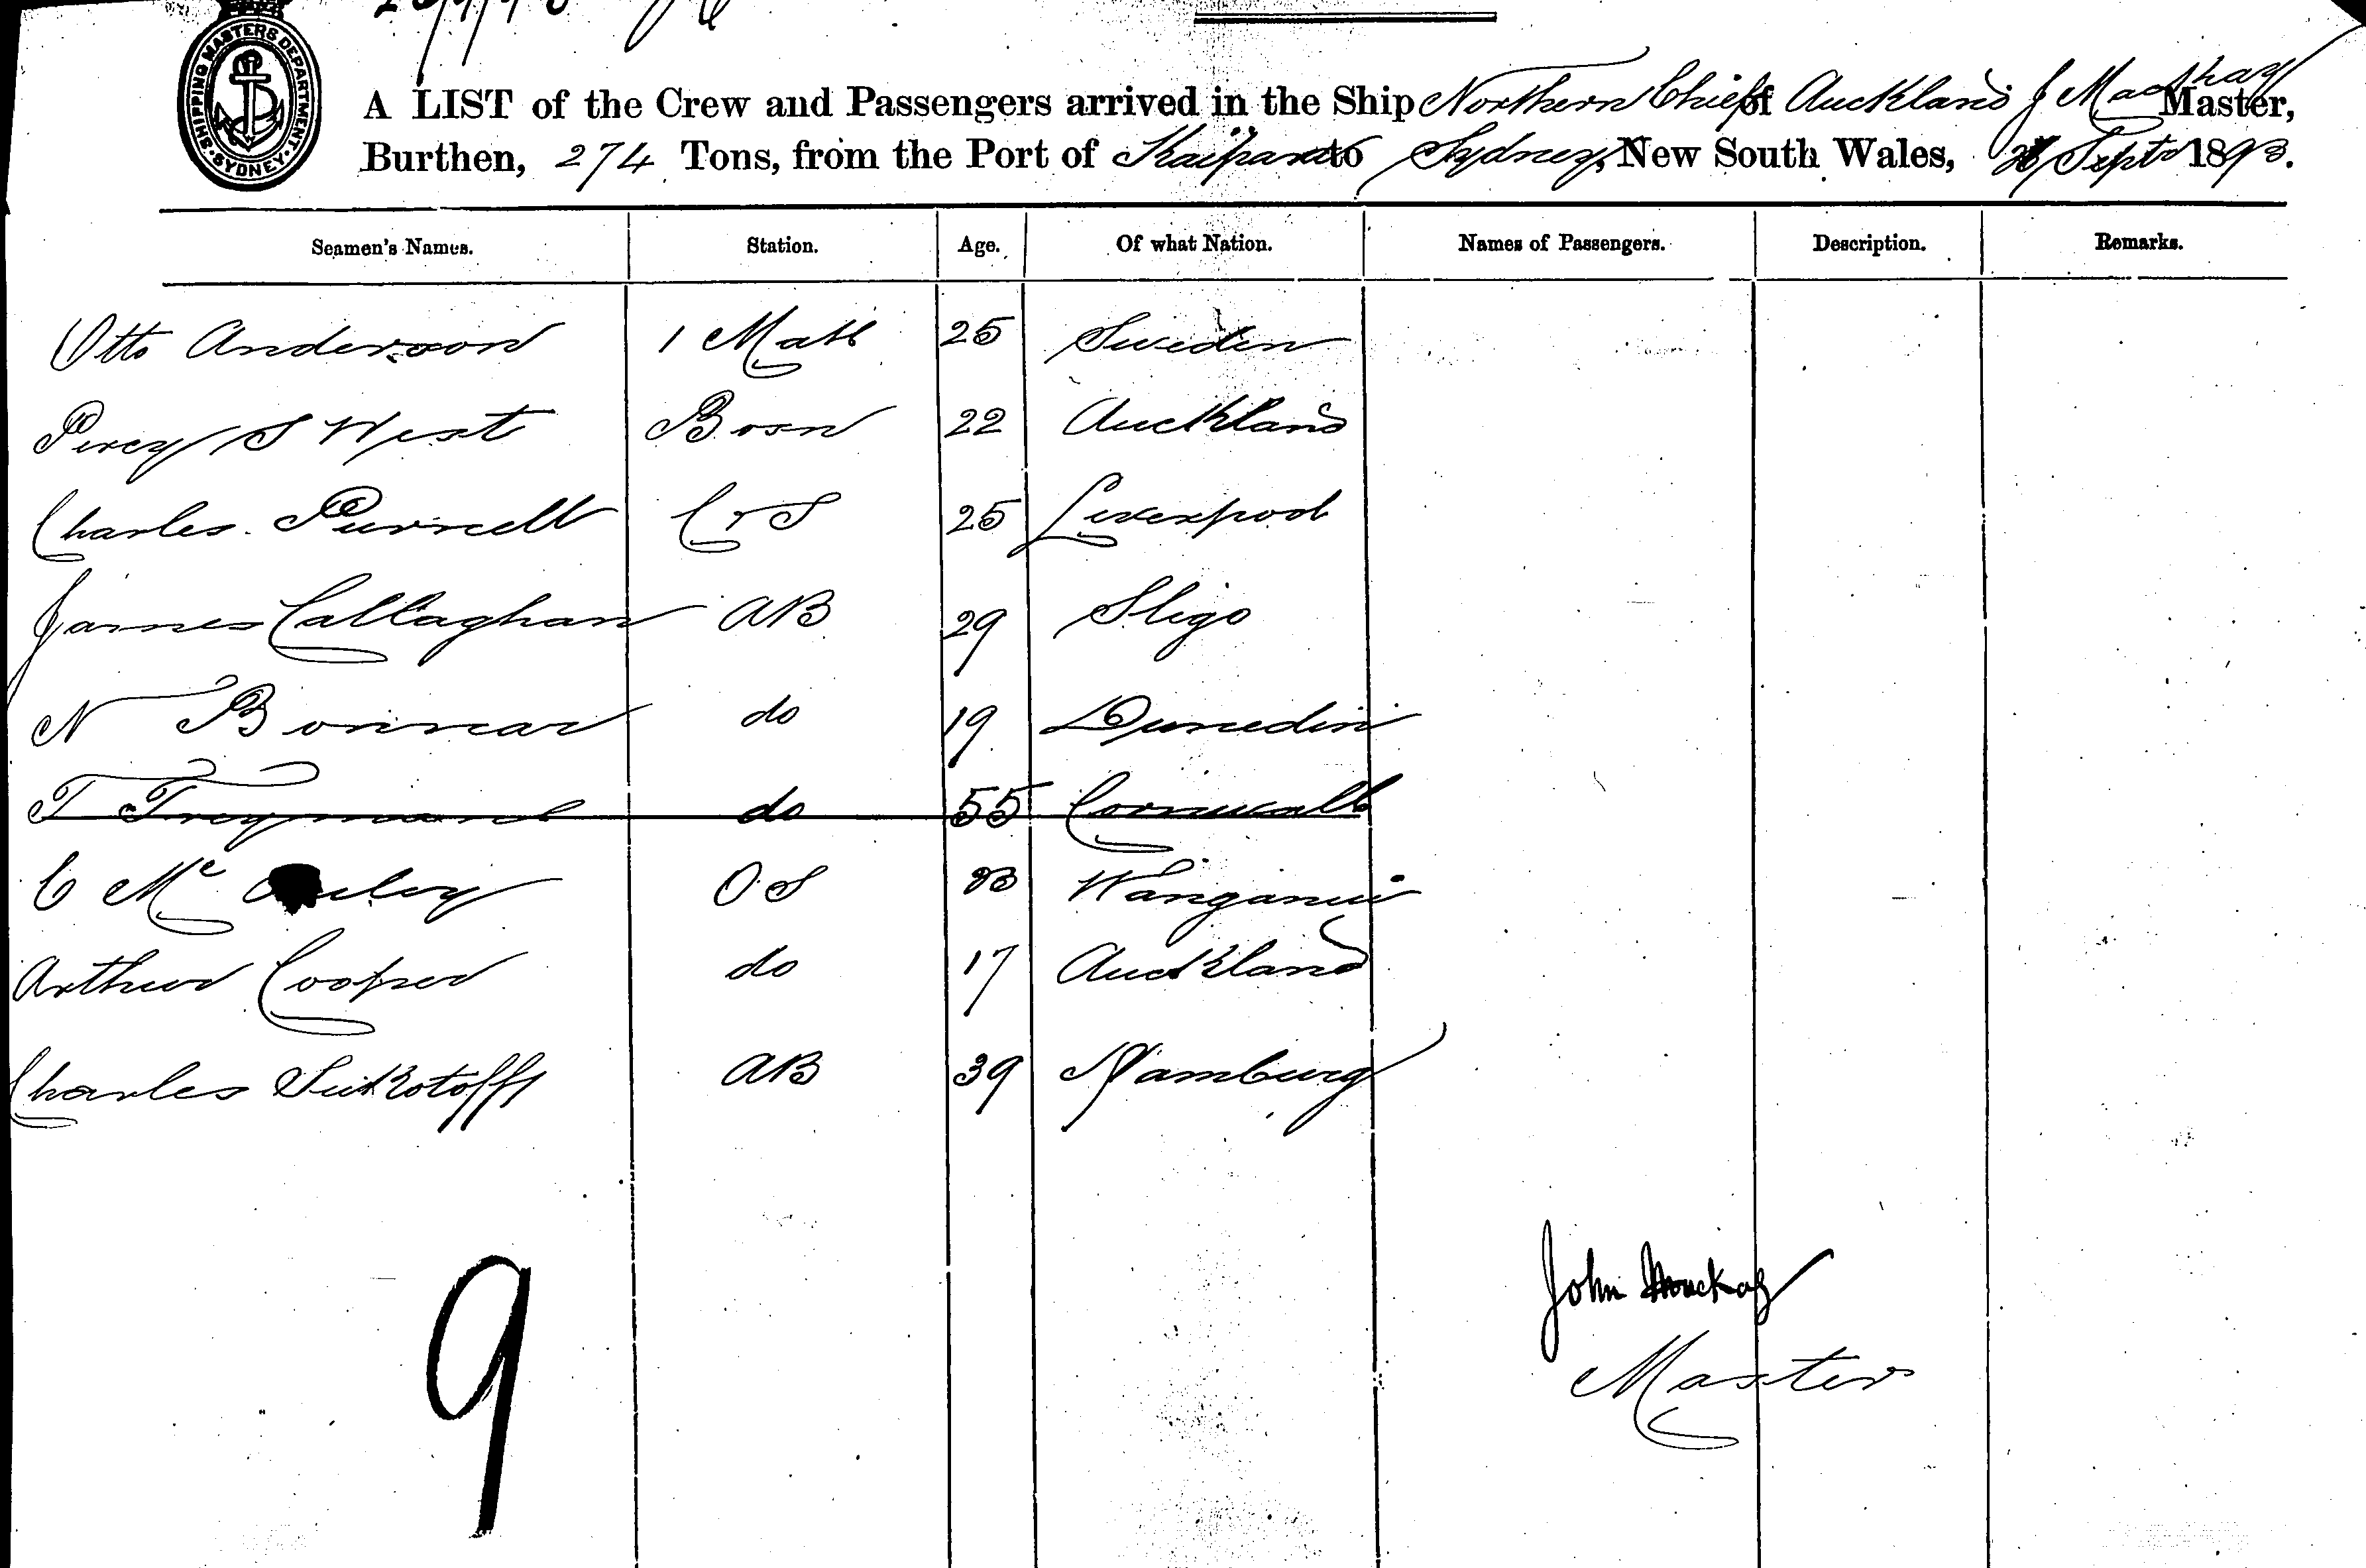 SHIPPING MASTERS DEPARTMENT. SYDNEY.
A LIST of the Crew and Passengers arrived in the Ship Northern Chief of Auckland J Mackay Master,
Burthen, 274 Tons, from the Port of Kaipara to Sydney, New South Wales, Sept 1893.
Seamen's Names. Station. Age. Of what Nation. Names of Passengers. Description. Remarks.
Otto Anderson 1 Mate 25 Sweden
Percy S West Bosn 22 Auckland
Charles Purnell C & S 25 Liverpool
James Callaghan AB 29 Sligo
N Bonnar do 19 Dunedin
T do 55 Cornwall
C Mc OS Wanganui
Arthur Cooper do 17 Auckland
Charles AB 39 Hamburg
9
John Mackay
Master